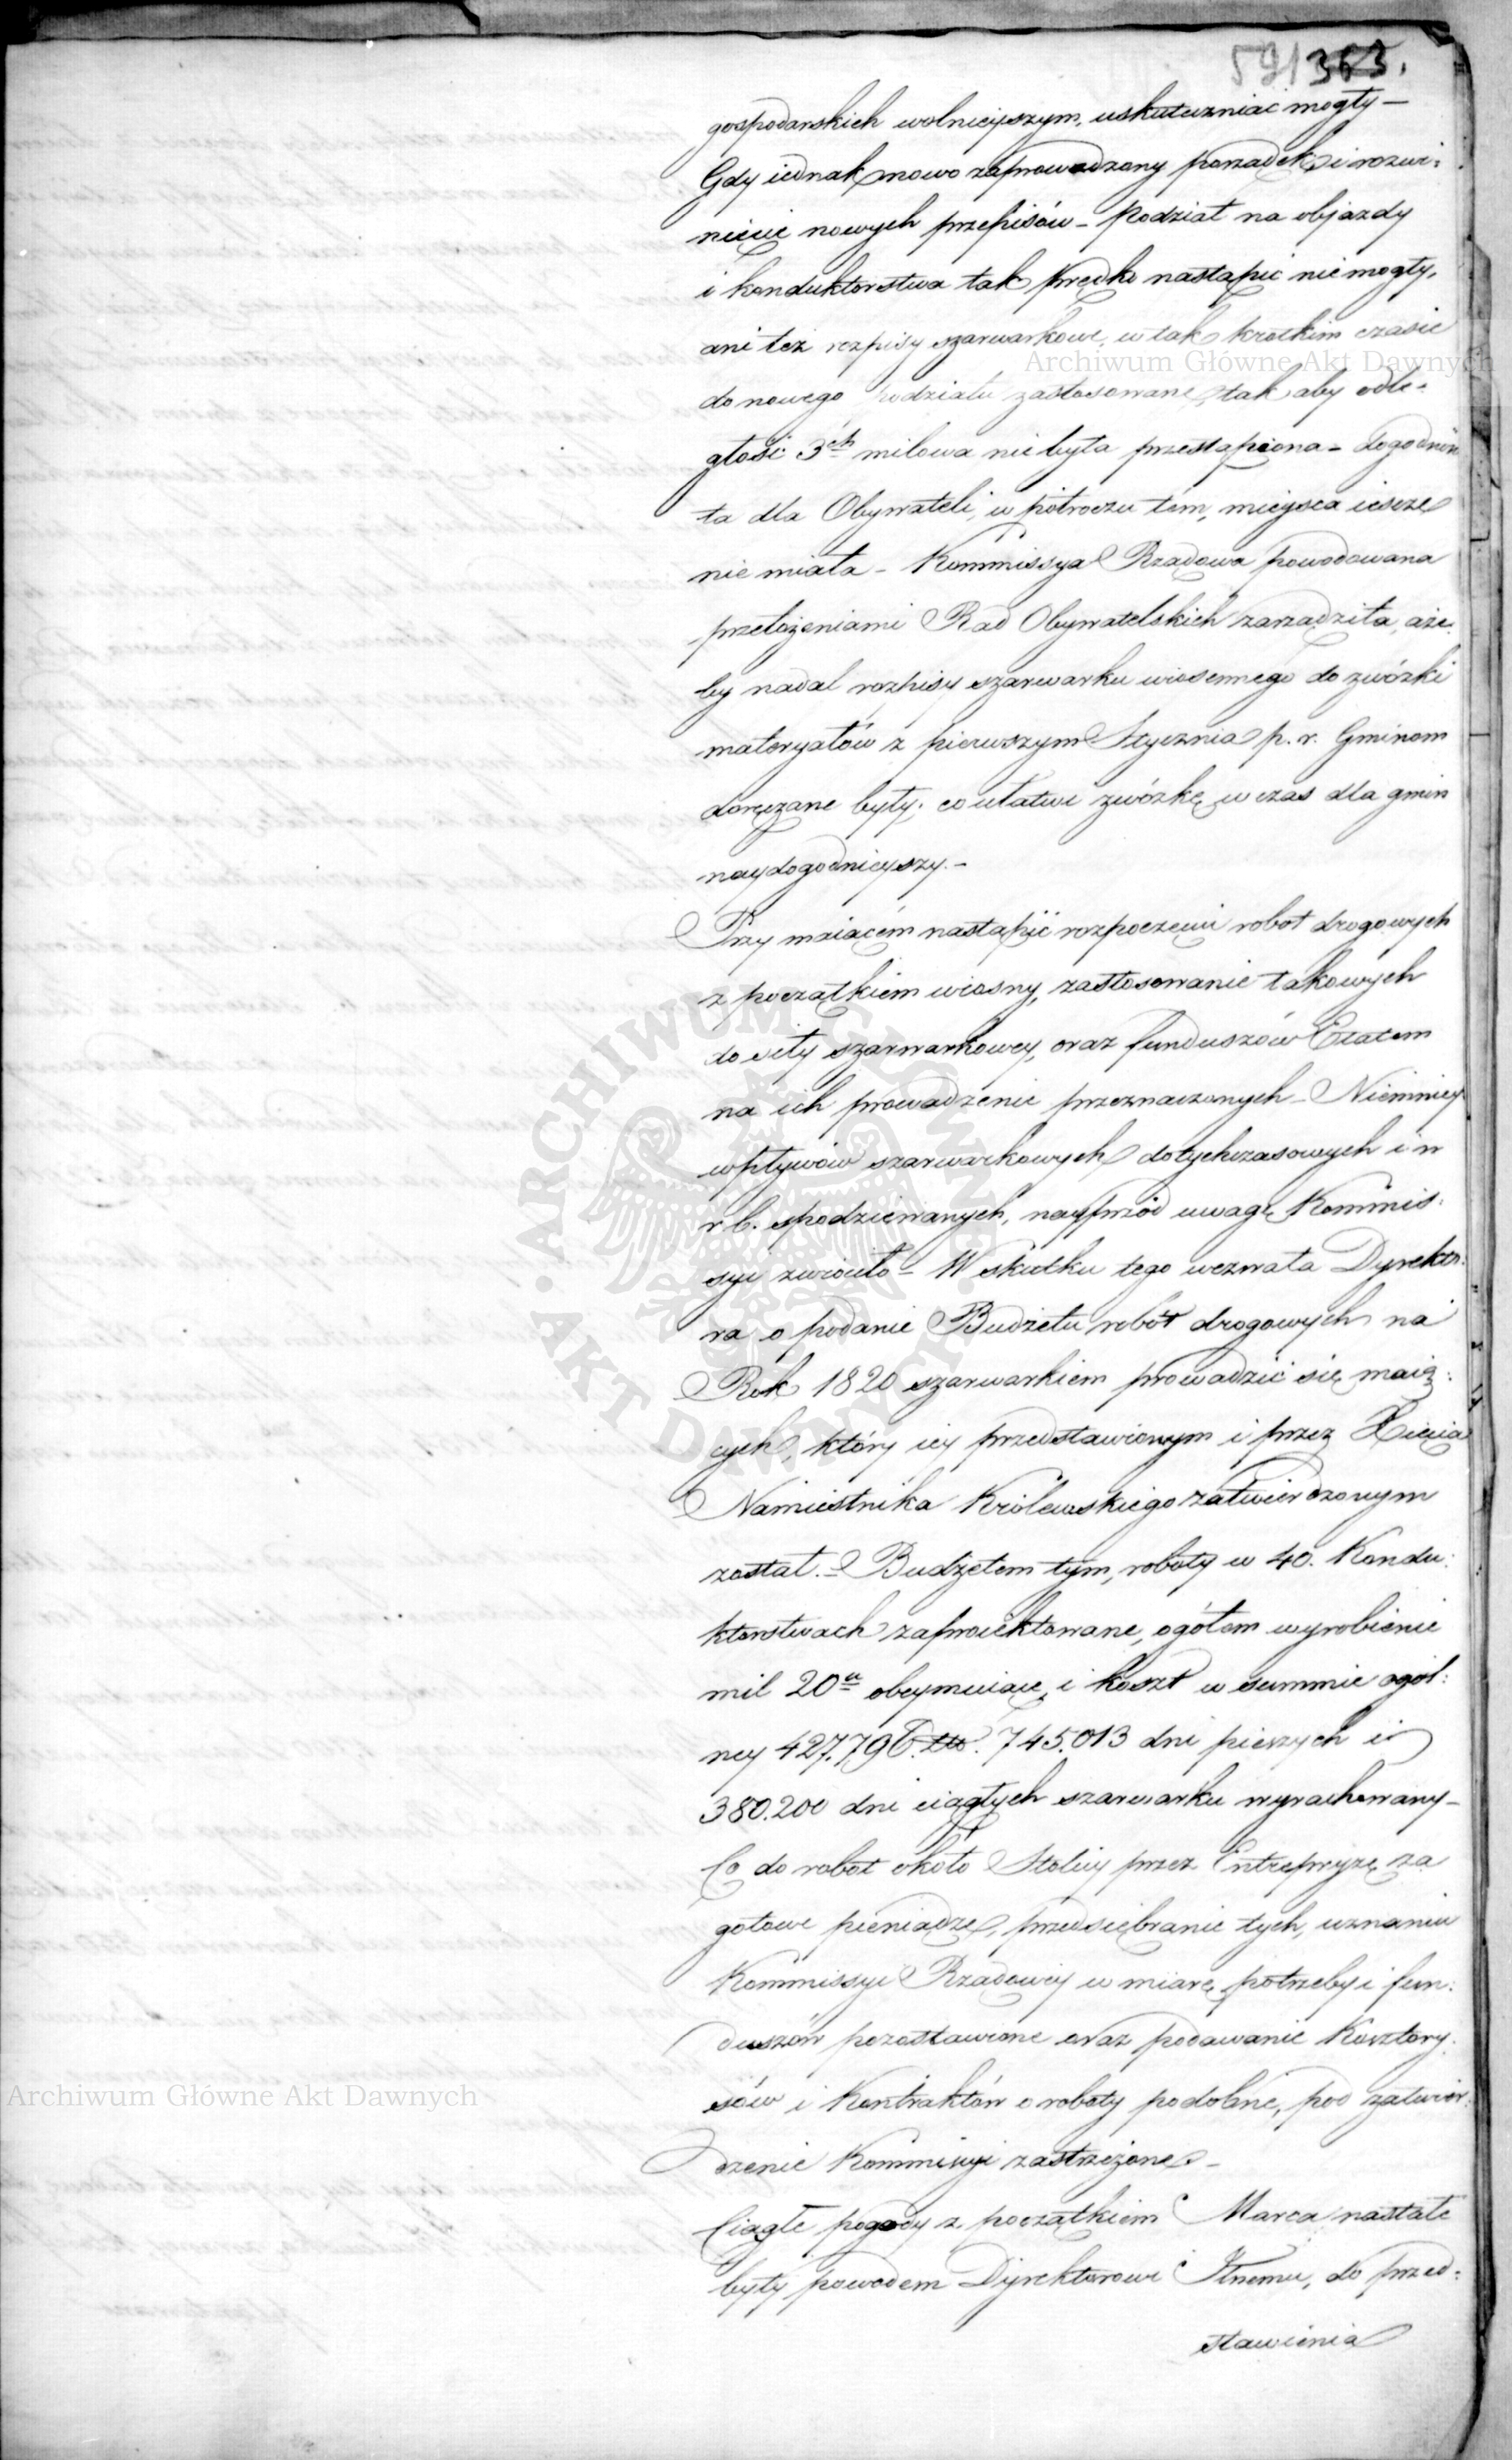 591 363.
gospodarskich wolnieyszym, uskuteczniać mogły —
Gdy iednak nowo zaprowadzony porządek, i rozwi:
nięcie nowych przepisów – Podział na objazdy
i konduktorstwa tak prędko nastąpić nie mogły,
ani też rozpisy szarwarkowe, w tak krotkim czasie
do nowego podziału zastosowane, tak aby odle:
głość 3ch milowa nie była przestąpiona – dogodność
ta dla Obywateli, w półroczu tém, mieysca ieszcze
nie miała – Kommissya Rządowa powodowana
przełożeniami Rad Obywatelskich zarządziła, aże:
by nadal rozpisy szarwarku wiosennego do zwózki
materyałów z pierwszym Stycznia p. r. Gminom
doręczane były; co ułatwi zwózkę w czas dla gmin
naydogodnieyszy. –
Przy maiącém nastąpić rozpoczęciu robot drogowych
z początkiem wiosny, zastosowanie takowych
do siły szarwarkowey, oraz funduszów Etatem
na ich prowadzenie przeznaczonych – Niemniey
wpływów szarwarkowych dotychczasowych i w
r. b. spodziewanych, nayprzód uwagę Kommis:
syi zwróciło – W skutku tego wezwała Dyrekto:
ra o podanie Budżetu robót drogowych na
Rok 1820 szarwarkiem prowadzić się maią:
cych, który iey przedstawionym i przez Xięcia
Namiestnika Królewskiego zatwierdzonym
został. – Budżetem tym, roboty w 40. Kondu:
ktorstwach zaproiektowane, ogółem wyrobienie
mil 20u obeymuiące, i koszt w summie ogól:
ney 427,796. złt. 745.013 dni pieszych i
380.200 dni ciągłych szarwarku wyrachowany –
Co do robot około Stolicy przez Entrepryzę za
gotowe pieniądze, przedsiębranie tych, uznaniu
Kommissyi Rządowey w miarę potrzeby i fun:
duszów pozostawione oraz podawanie Kosztory:
sów i Kontraktów o roboty podobne, pod zatwier:
dzenie Kommissyi zastrzeżone. –
Ciągłe pogody z początkiem Marca nastałe
były powodem Dyrektorowi Jlnemu, do przed:
stawienia
Archiwum Główne Akt Dawnych
Archiwum Główne Akt Dawnych
ARCHIWUM GŁÓWNE • AKT DAWNYCH •